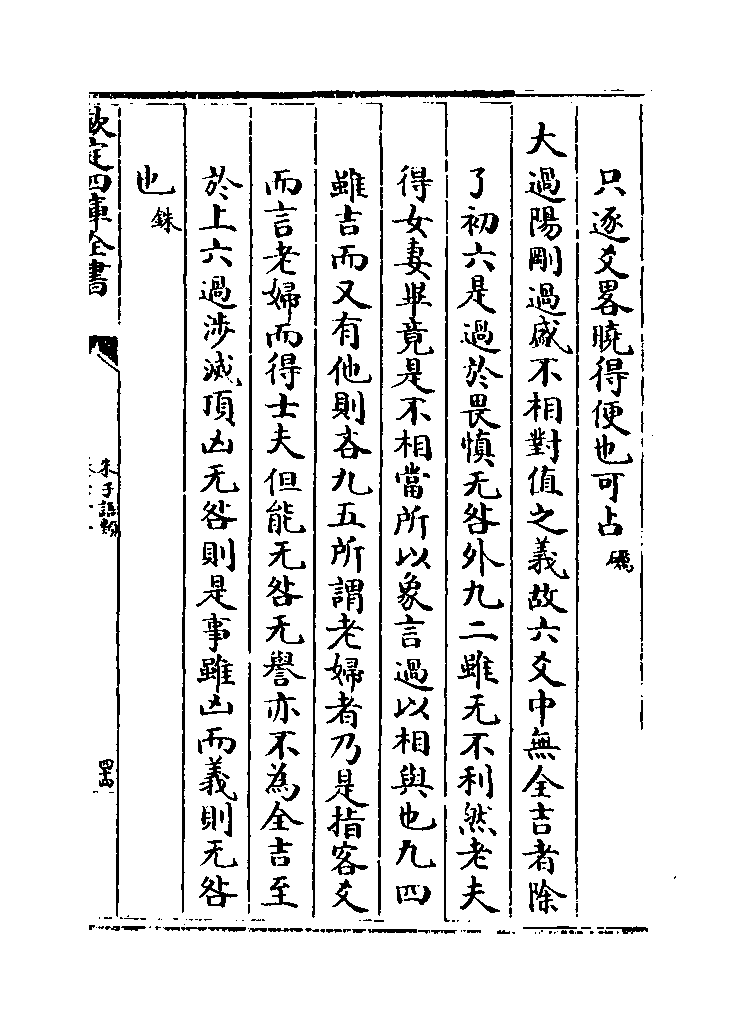 只逐爻畧曉得便也可占礪
大過陽剛過盛不相對值之義故六爻中無全吉者除
了初六是過於畏慎无咎外九二雖无不利然老夫
得女妻畢竟是不相當所以象言過以相與也九四
雖吉而又有他則吝九五所謂老婦者乃是指客爻
而言老婦而得士夫但能无咎无譽亦不為全吉至
於上六過涉滅頂凶无咎則是事雖凶而義則无咎
也銖
欽定四庫全書
朱子語類